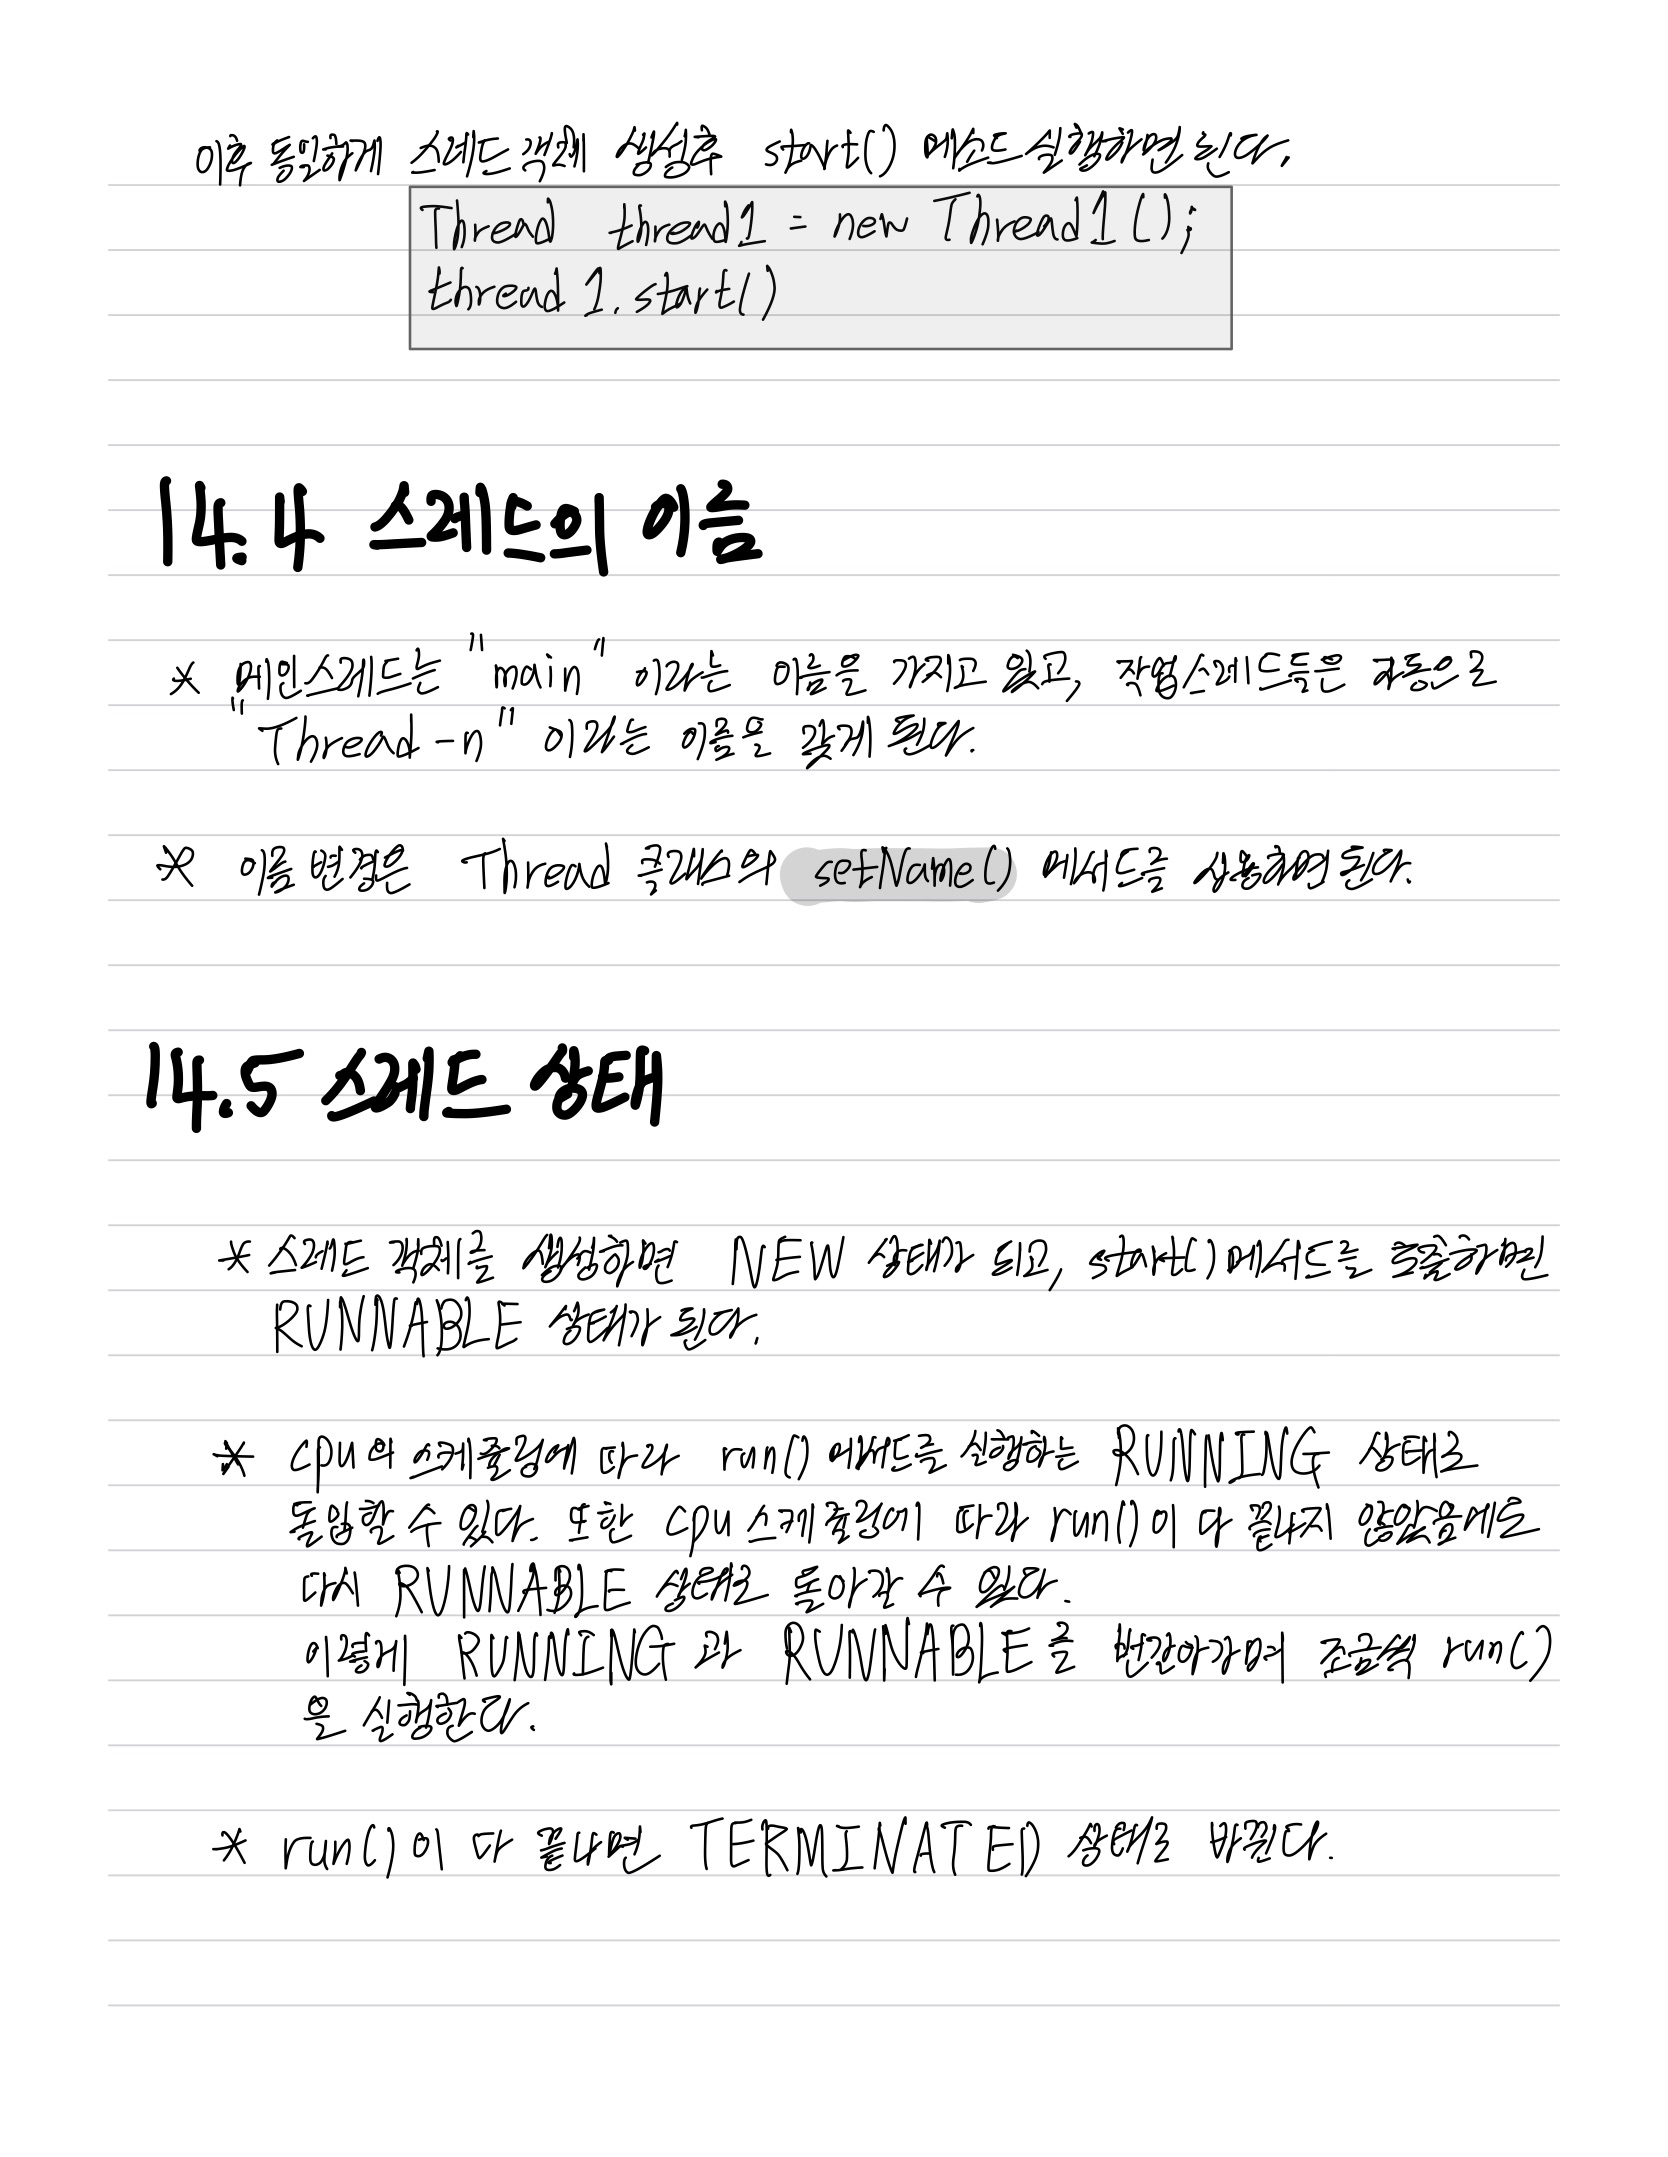 이후 동일하게 스레드 객체 생성후 start() 메소드 실행하면 된다.
Thread thread1 = new Thread1();
thread1.start()
14.4 스레드의 이름
* 메인스레드는 "main" 이라는 이름을 가지고 있고, 작업스레드들은 자동으로
"Thread-n" 이라는 이름을 갖게 된다.
* 이름 변경은 Thread 클래스의 setName() 메서드를 사용하면 된다.
14.5 스레드 상태
* 스레드 객체를 생성하면 NEW 상태가 되고, start() 메서드를 호출하면
RUNNABLE 상태가 된다.
* cpu의 스케쥴링에 따라 run() 메서드를 실행하는 RUNNING 상태로
돌입할 수 있다. 또한 cpu 스케쥴링에 따라 run()이 다 끝나지 않았음에도
다시 RUNNABLE 상태로 돌아갈 수 있다.
이렇게 RUNNING과 RUNNABLE을 번갈아가며 조금씩 run()
을 실행한다.
* run()이 다 끝나면 TERMINATED 상태로 바뀐다.